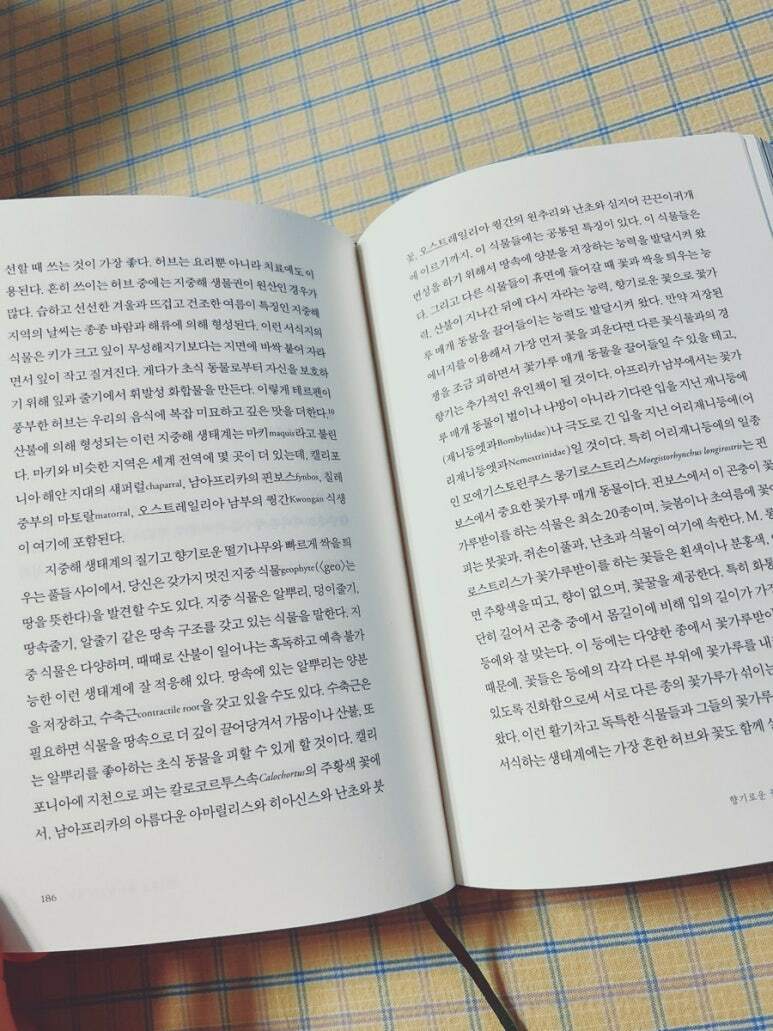 선할 때 쓰는 것이 가장 좋다. 허브는 요리뿐 아니라 치료에도 이
용된다. 흔히 쓰이는 허브 중에는 지중해 생물권이 원산인 경우가
많다. 습하고 선선한 겨울과 뜨겁고 건조한 여름이 특징인 지중해
지역의 날씨는 종종 바람과 해류에 의해 형성된다. 이런 서식지의
식물은 키가 크고 잎이 무성해지기보다는 지면에 바싹 붙어 자라
면서 잎이 작고 질겨진다. 게다가 초식 동물로부터 자신을 보호하
기 위해 잎과 줄기에서 휘발성 화합물을 만든다. 이렇게 테르펜이
풍부한 허브는 우리의 음식에 복잡 미묘하고 깊은 맛을 더한다.10
산불에 의해 형성되는 이런 지중해 생태계는 마키maquis라고 불린
다. 마키와 비슷한 지역은 세계 전역에 몇 곳이 더 있는데, 캘리포
니아 해안 지대의 섀퍼럴chaparral, 남아프리카의 핀보스fynbos, 칠레
중부의 마토랄matorral, 오스트레일리아 남부의 퀑간Kwongan 식생
이 여기에 포함된다.
지중해 생태계의 질기고 향기로운 떨기나무와 빠르게 싹을 틔
우는 풀들 사이에서, 당신은 갖가지 멋진 지중 식물geophyte(〈geo〉는
땅을 뜻한다)을 발견할 수도 있다. 지중 식물은 알뿌리, 덩이줄기,
땅속줄기, 알줄기 같은 땅속 구조를 갖고 있는 식물을 말한다. 지
중 식물은 다양하며, 때때로 산불이 일어나는 혹독하고 예측 불가
능한 이런 생태계에 잘 적응해 있다. 땅속에 있는 알뿌리는 양분
을 저장하고, 수축근contractile root을 갖고 있을 수도 있다. 수축근은
필요하면 식물을 땅속으로 더 깊이 끌어당겨서 가뭄이나 산불, 또
는 알뿌리를 좋아하는 초식 동물을 피할 수 있게 할 것이다. 캘리
포니아에 지천으로 피는 칼로코르투스속Calochortus의 주황색 꽃에
서, 남아프리카의 아름다운 아마릴리스와 히아신스와 난초와 붓
186
꽃, 오스트레일리아 퀑간의 원추리와 난초와 심지어 끈끈이귀개
에 이르기까지. 이 식물들에는 공통된 특징이 있다. 이 식물들은
번성을 하기 위해서 땅속에 양분을 저장하는 능력을 발달시켜 왔
다. 그리고 다른 식물들이 휴면에 들어갈 때 꽃과 싹을 틔우는 능
력, 산불이 지나간 뒤에 다시 자라는 능력, 향기로운 꽃으로 꽃가
루 매개 동물을 끌어들이는 능력도 발달시켜 왔다. 만약 저장된
에너지를 이용해서 가장 먼저 꽃을 피운다면 다른 꽃식물과의 경
쟁을 조금 피하면서 꽃가루 매개 동물을 끌어들일 수 있을 테고,
향기는 추가적인 유인책이 될 것이다. 아프리카 남부에서는 꽃가
루 매개 동물이 벌이나 나방이 아니라 기다란 입을 지닌 재니등에
(재니등엣과Bombyliidae)나 극도로 긴 입을 지닌 어리재니등에(어
리재니등엣과Nemestrinidae)일 것이다. 특히 어리재니등에의 일종
인 모에기스토린쿠스 롱기로스트리스Moegistorhynchus longirostris는 핀
보스에서 중요한 꽃가루 매개 동물이다. 핀보스에서 이 곤충이 꽃
가루받이를 하는 식물은 최소 20종이며, 늦봄이나 초여름에 꽃이
피는 붓꽃과, 쥐손이풀과, 난초과 식물이 여기에 속한다. M. 롱
로스트리스가 꽃가루받이를 하는 꽃들은 흰색이나 분홍색,
면 주황색을 띠고, 향이 없으며, 꽃꿀을 제공한다. 특히 화통
단히 길어서 곤충 중에서 몸길이에 비해 입의 길이가 가장
등에와 잘 맞는다. 이 등에는 다양한 종에서 꽃가루받이
때문에, 꽃들은 등에의 각각 다른 부위에 꽃가루를 내
있도록 진화함으로써 서로 다른 종의 꽃가루가 섞이는
왔다. 이런 활기차고 독특한 식물들과 그들의 꽃가루
서식하는 생태계에는 가장 흔한 허브와 꽃도 함께
향기로운